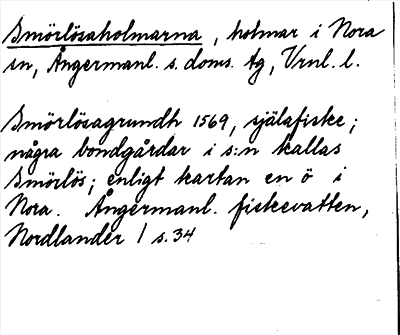 Smörlösaholmarna, holmar i Nora
sn, Ångermanl. s. doms. tg, Vrnl. l.
Smörlösagrundh 1569, själafiske;
några bondgårdar i s:n kallas
Smörlös; enligt kartan en ö i
Nora. Ångermanl. fiskevatten,
Nordlander I s. 34